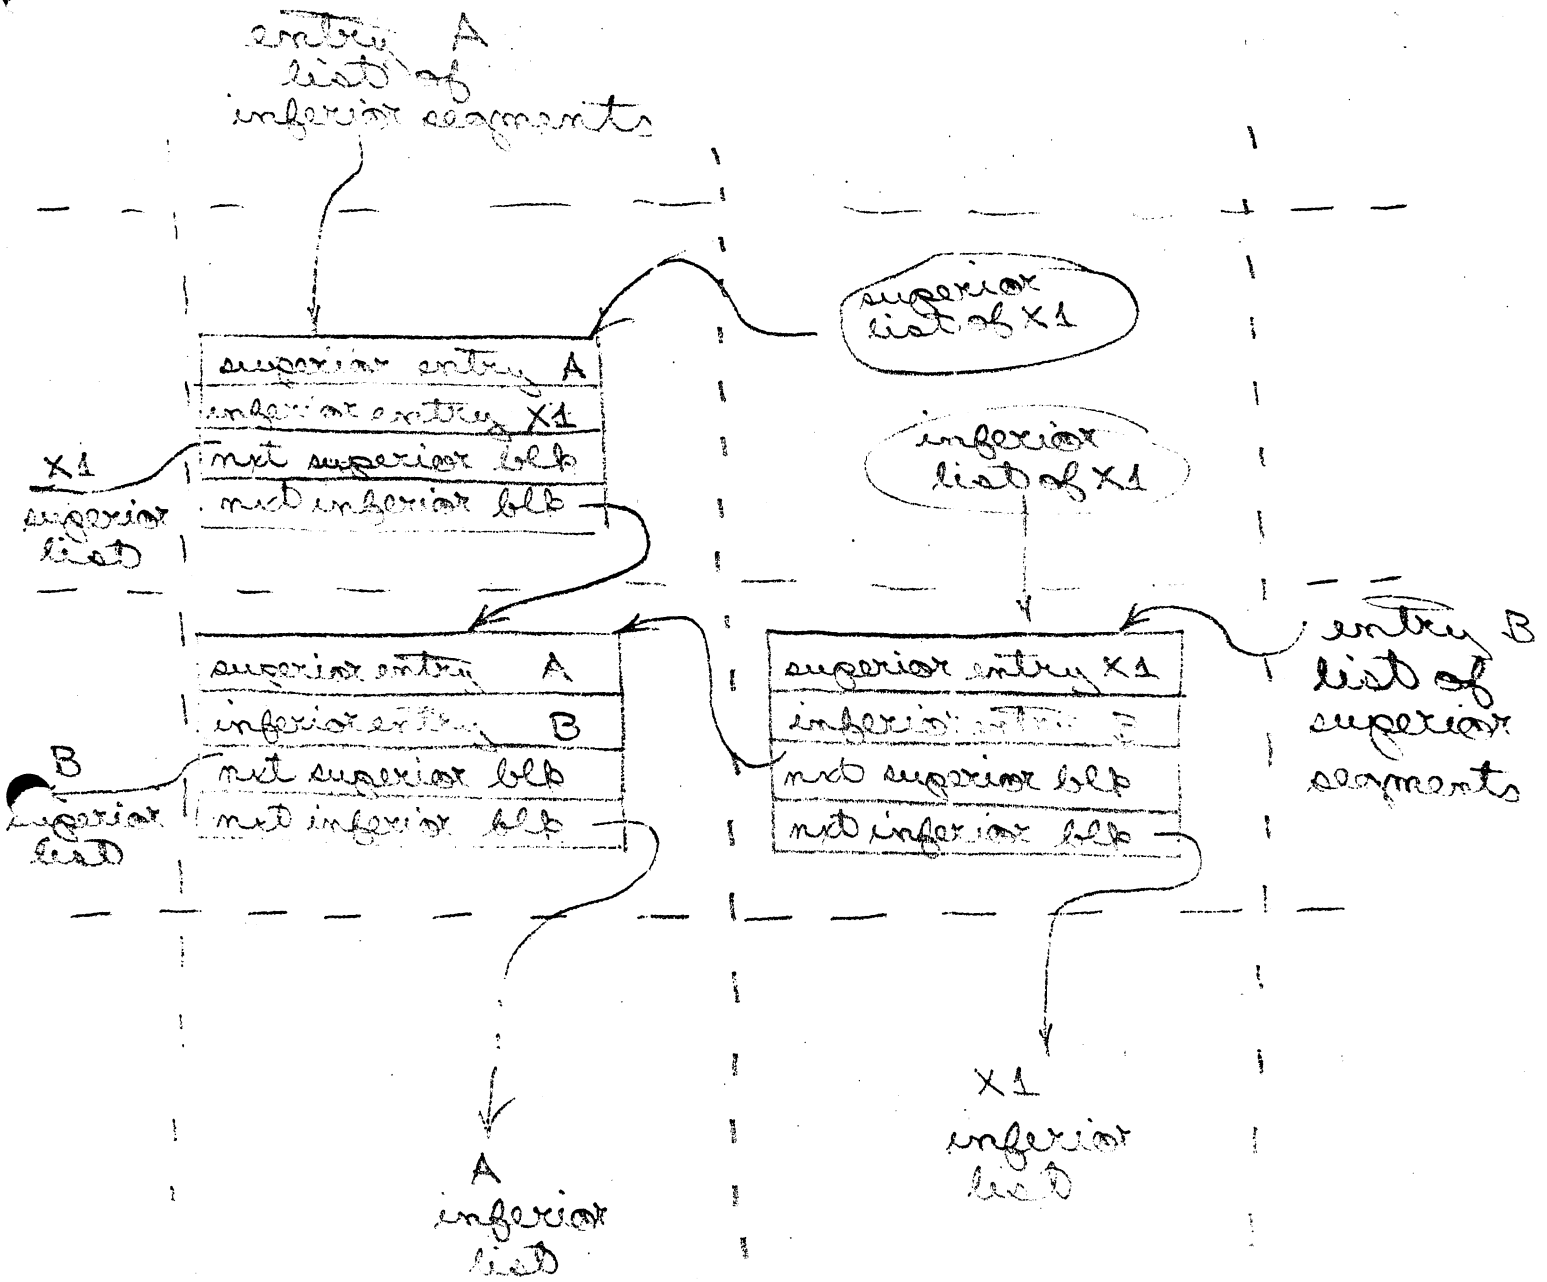 entry A
list of
inferior segments
superior
list of X1
superior entry A
inferior entry X1
nxt superior blk
nxt inferior blk
X1
superior
list
inferior
list of X1
superior entry A
inferior entry B
nxt superior blk
nxt inferior blk
B
superior
list
superior entry X1
inferior entry B
nxt superior blk
nxt inferior blk
entry B
list of
superior
segments
A
inferior
list
X1
inferior
list